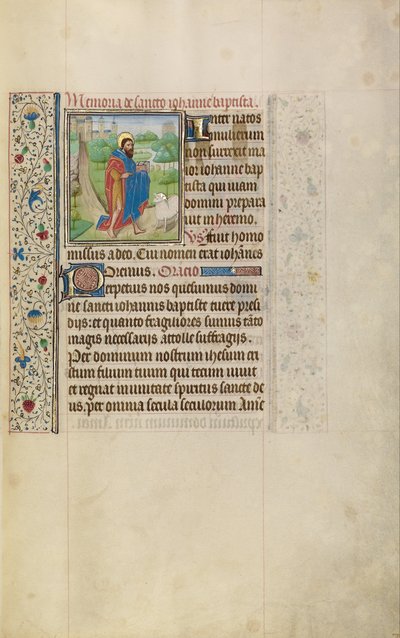 Memoria de sancto iohanne baptista.
Inter natos
mulierum
non surrexit ma
ior iohanne bap
tista qui uiam
domini prepara
uit in heremo.
Vs fuit homo
missus a deo. Cui nomen erat iohanes
Oremus. Oracio
Perpetuis nos quesumus domi
ne sancti iohannis baptiste tuere presi
dijs: et quanto fragiliores sumus tāto
magis necessarijs attolle suffragijs.
Per dominum nostrum ihesum cri
stum filium tuum qui tecum uiuit
et regnat in unitate spiritus sancte de
us. per omnia secula seculorum Amē